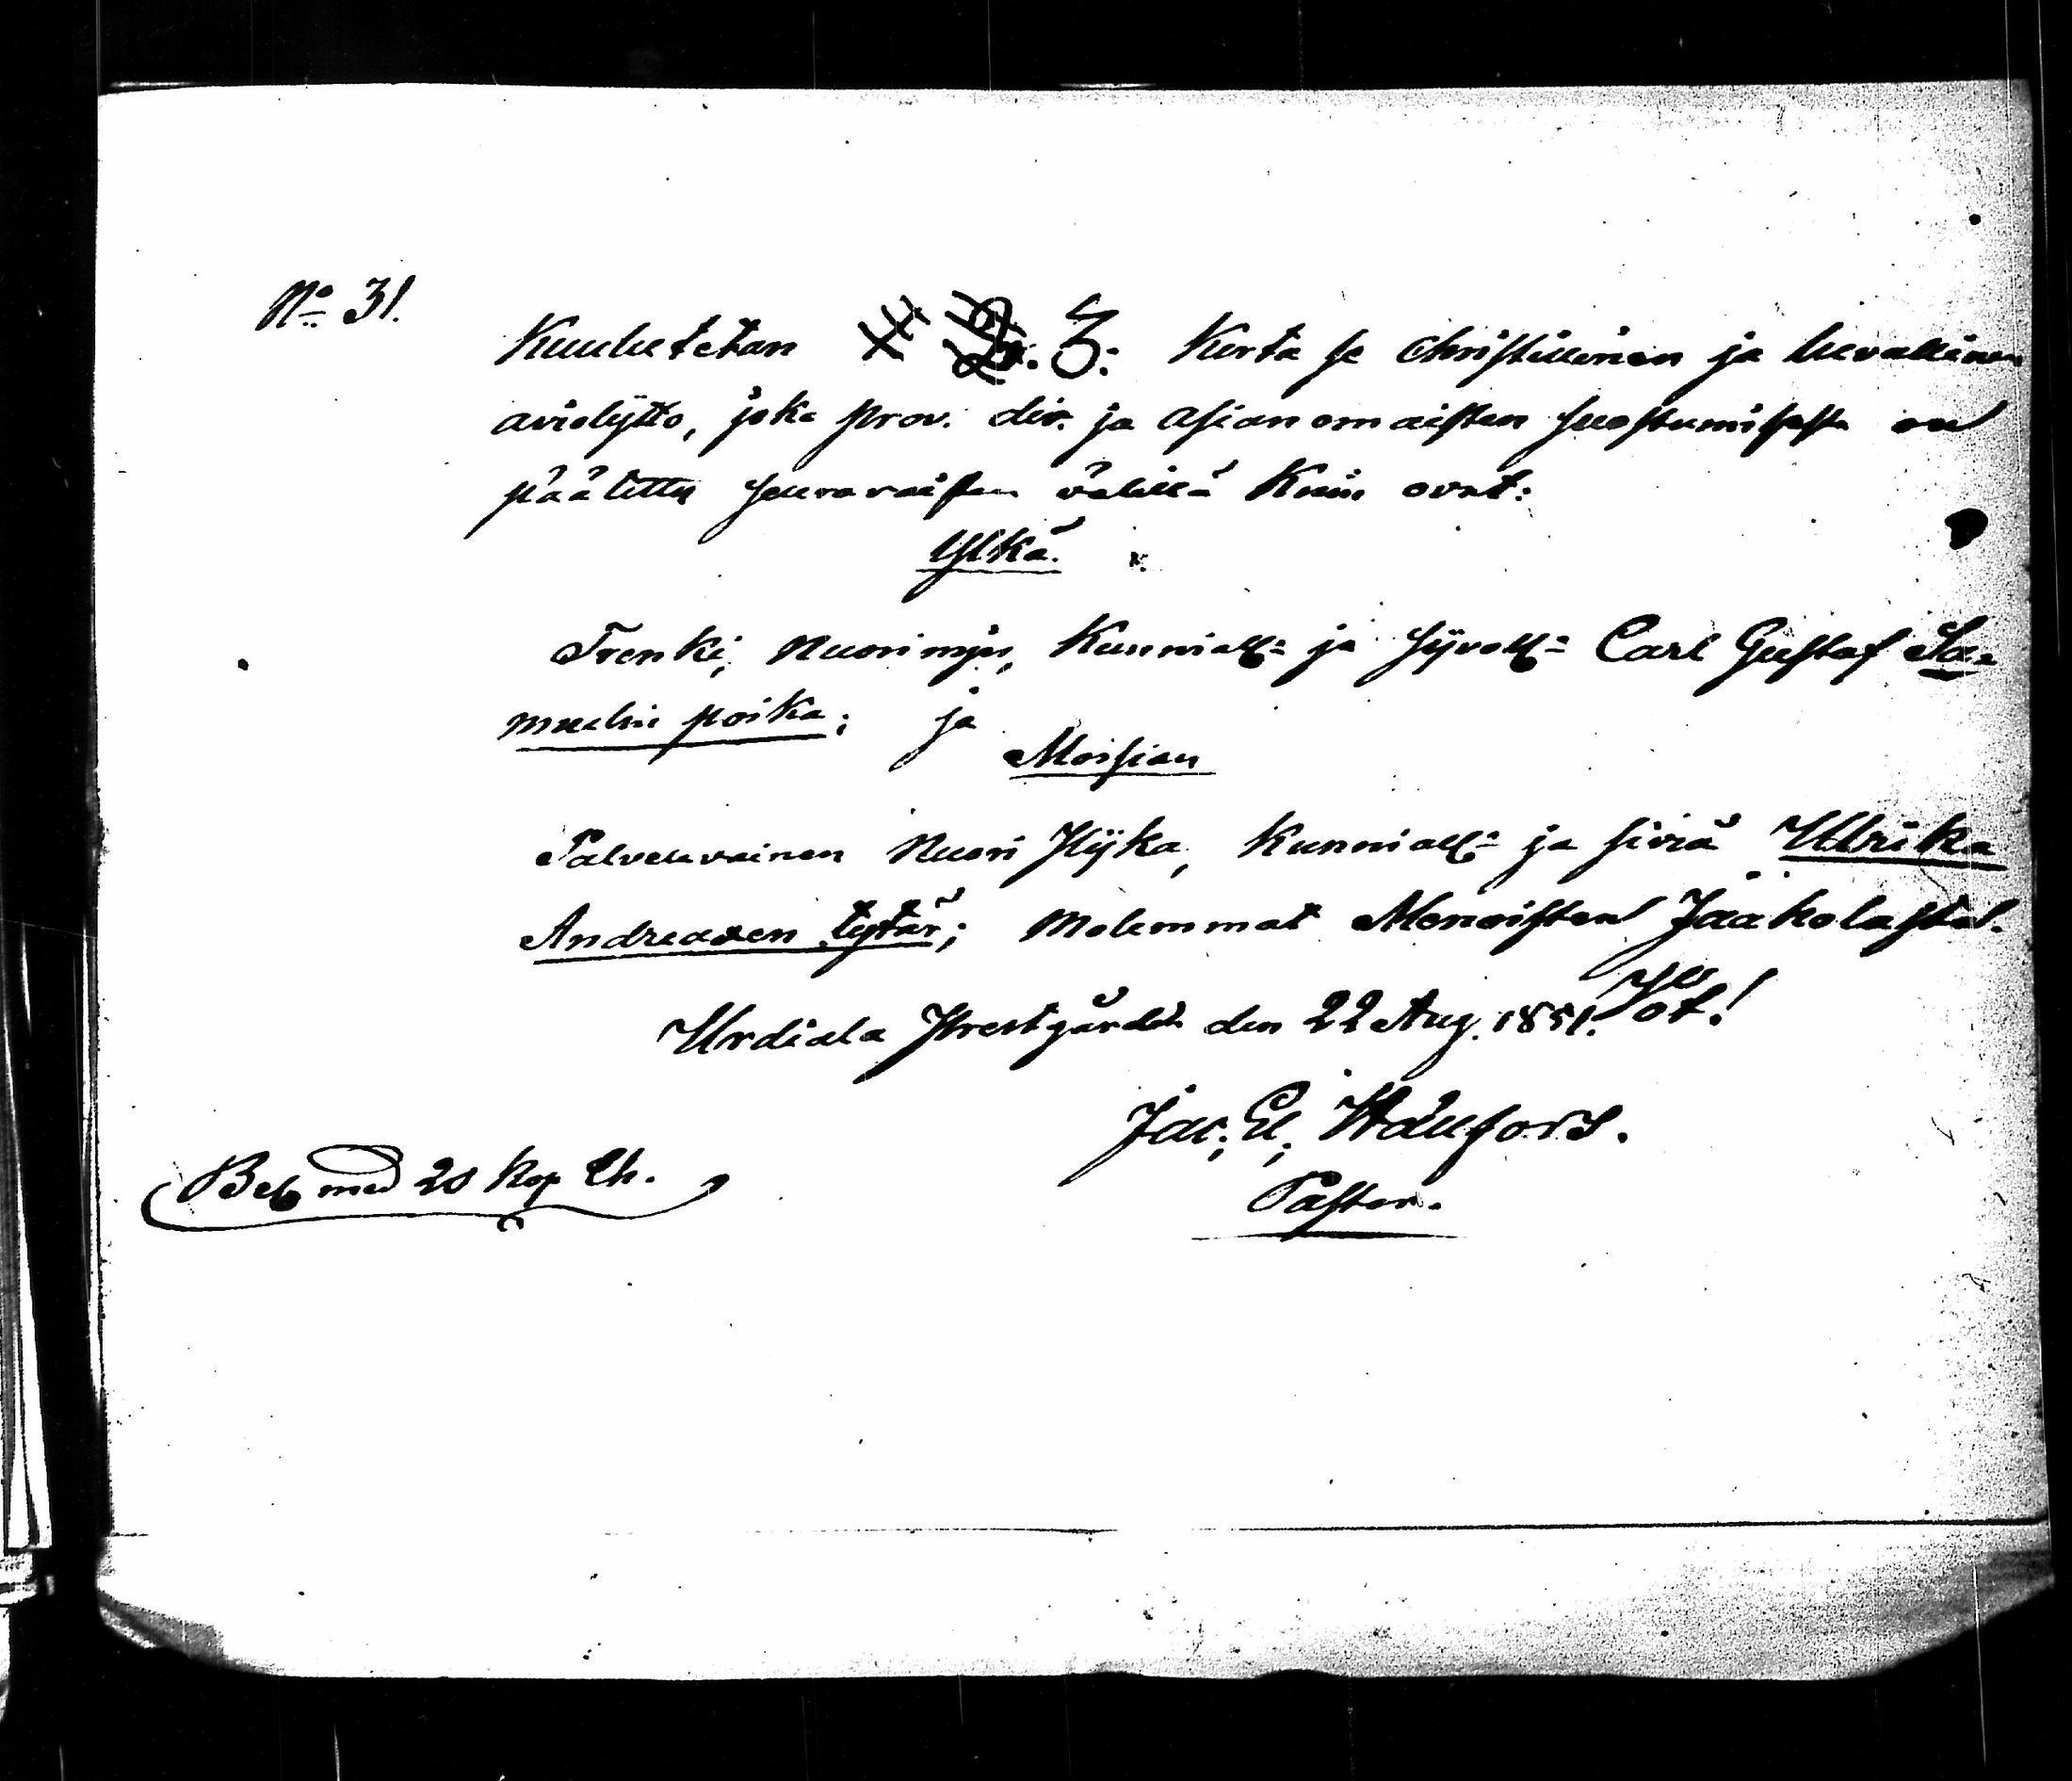 No. 31.
Kuulutetan 3: Kerta se christillinen ja luvallinen
aviolijtto, joka prov. div. ja asianomaisten suostumisesta on
päätetty seuravaisten välillä Kuin ovat:
Ylkä.
Trenki, Nuori mjes, Kunniall= ja Syvall= Carl Gustaf Sa=
muelin poika; ja
Morsian
Palveluvainen Nuori Pijka, Kunniall= ja siviä Ulrika
Andreaxen tytär; Molemmat Menoisten Jaakolasta.
Urdiala Prestgård den 22 Aug. 1851.
Jac. Ed. Wallfors.
Pastor.
Bet med 20 kop